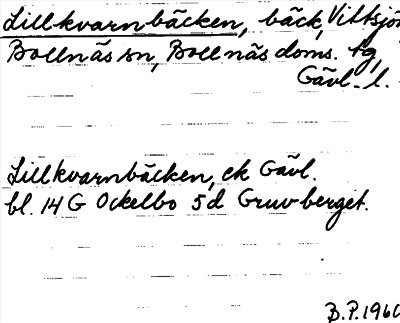 Lillkvarnbäcken, bäck, Vittsjön
Bollnäs sn, Bollnäs doms. tg,
Gävl. l.
Lillkvarnbäcken, ek Gävl.
bl. 14 G Ockelbo 5d Gruvberget.
B.P. 1960